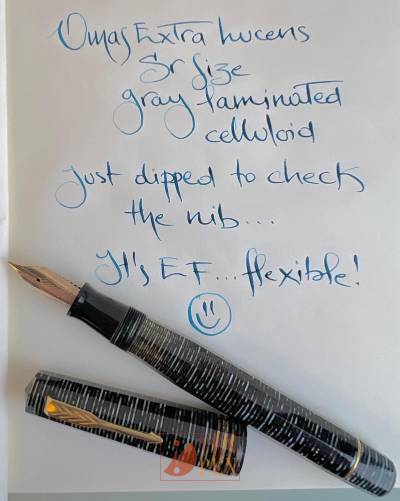 Omas Extra Lucens
Sr Size
gray laminated
celluloid
Just dipped to check
the nib...
It's EF...flexible!